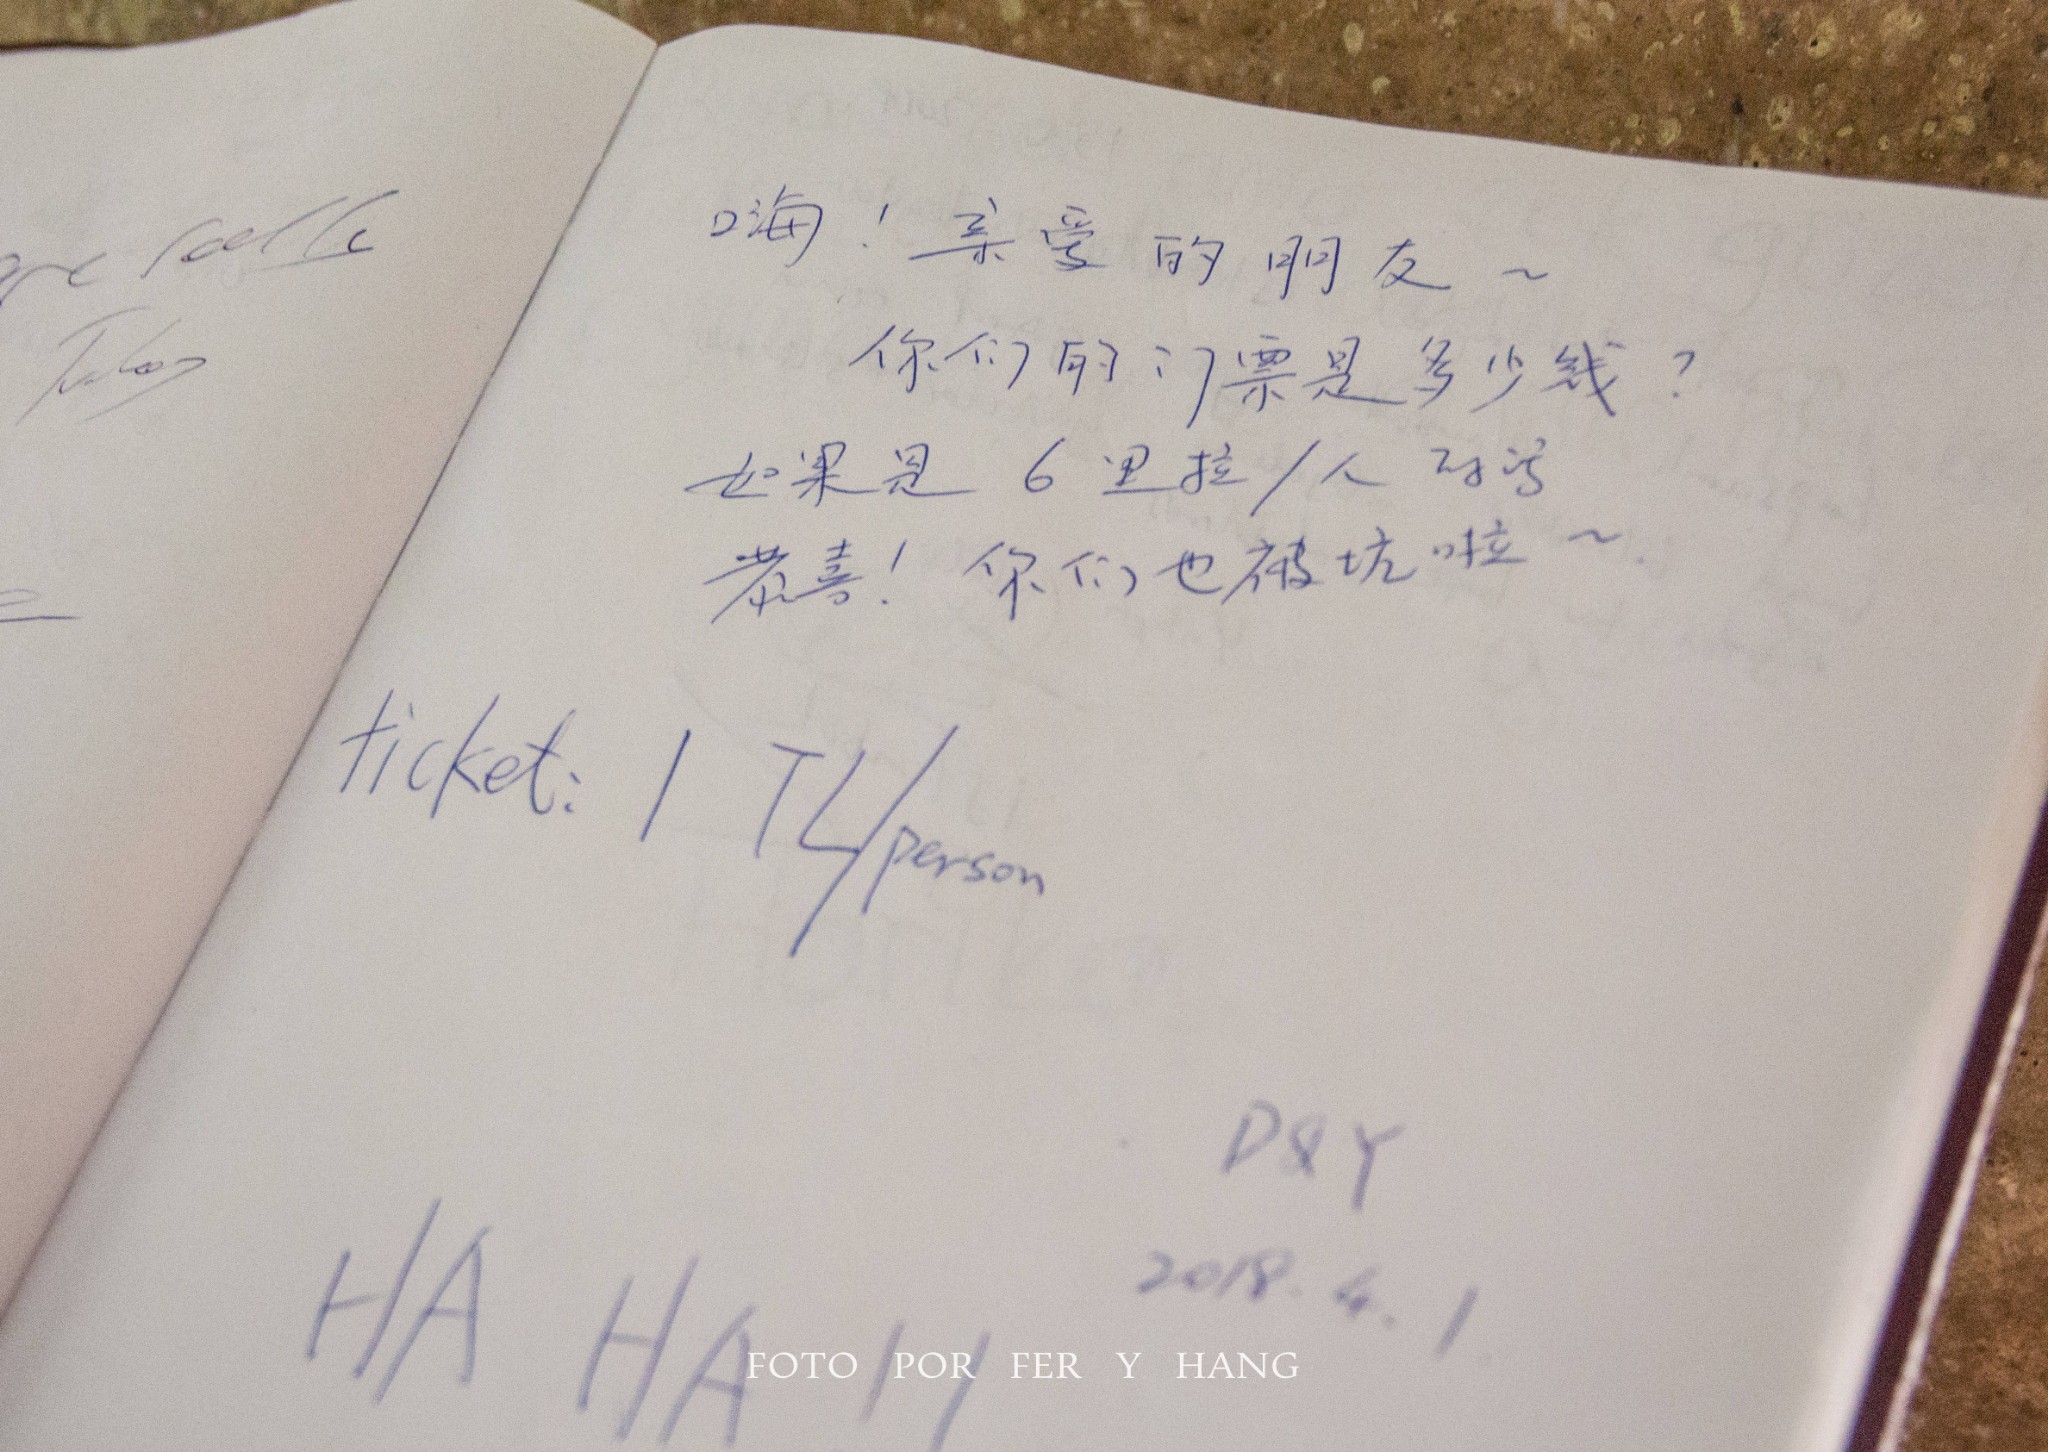 嗨！亲爱的朋友～
你们的门票是多少钱？
如果是 6 里拉/人 的话
恭喜！你们也被坑啦～
ticket: 1 TL/person
D&Y
2018.4.1
HA HA H
FOTO POR FER Y HANG